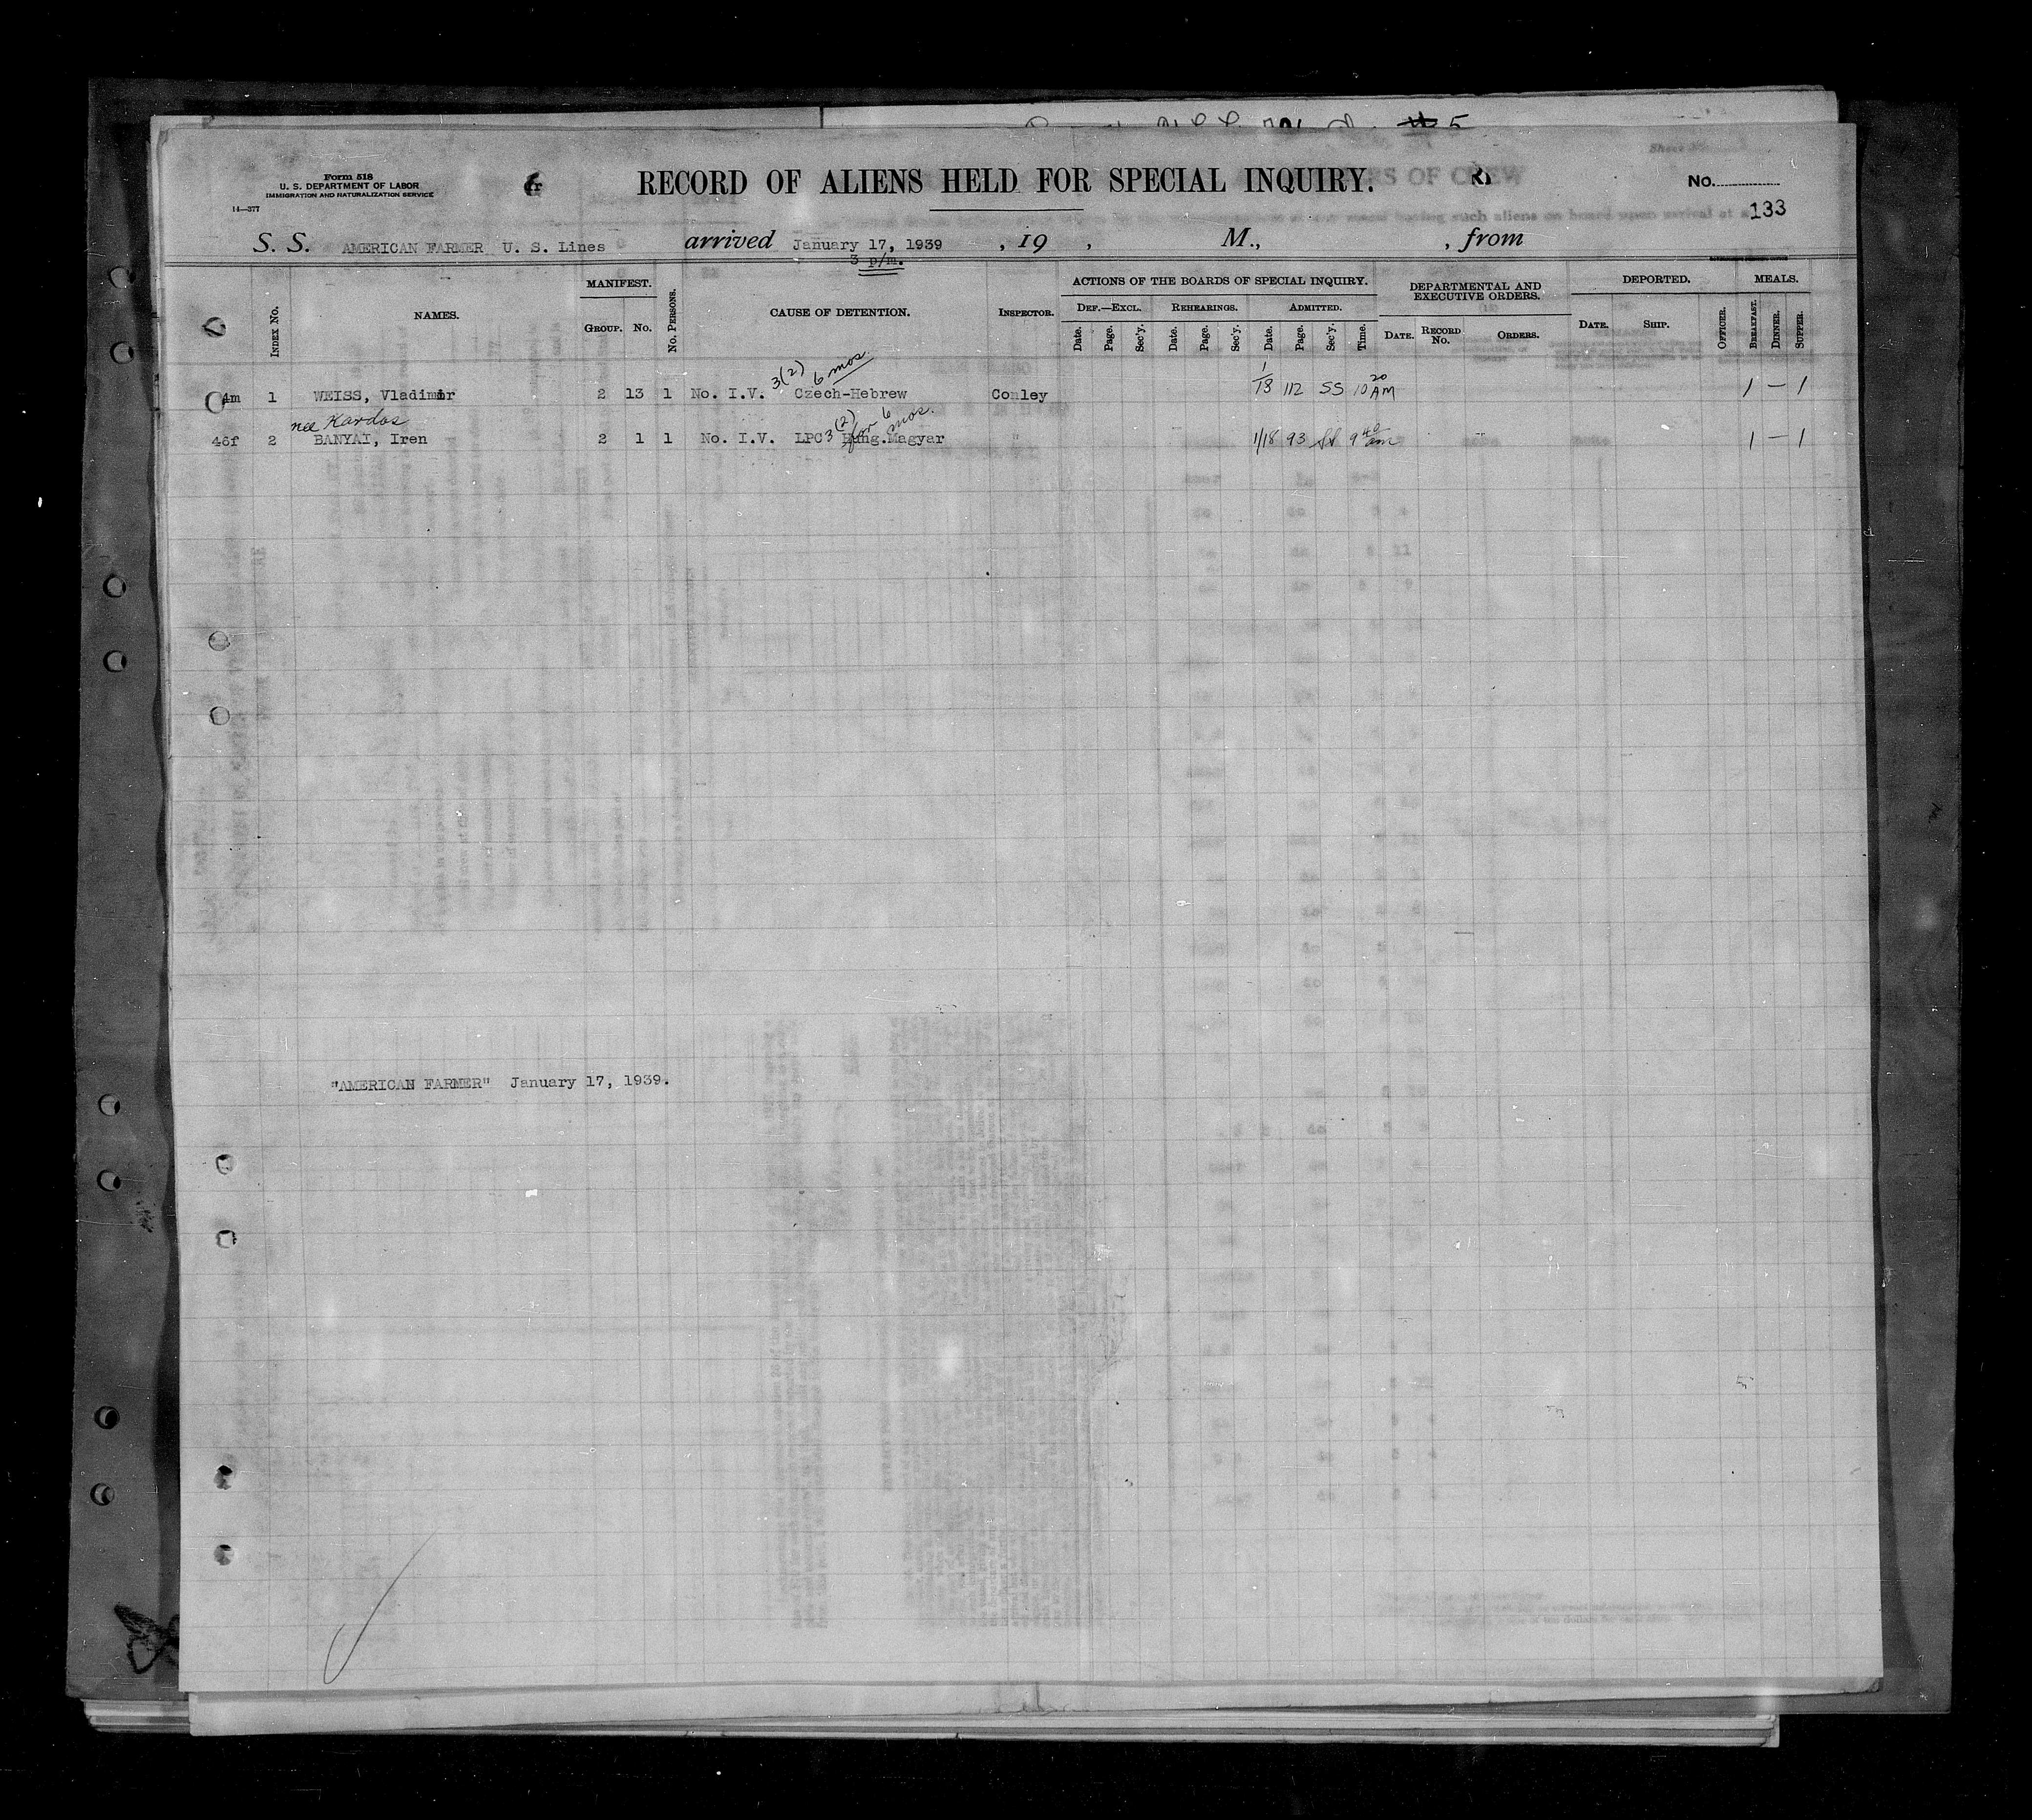 Form 518
U. S. DEPARTMENT OF LABOR
IMMIGRATION AND NATURALIZATION SERVICE
14—377
RECORD OF ALIENS HELD FOR SPECIAL INQUIRY.
No.
133
S. S. AMERICAN FARMER U. S. Lines arrived January 17, 1939 , 19 , M., , from
3 p/m.
INDEX NO. NAMES. MANIFEST. GROUP. NO. NO. PERSONS. CAUSE OF DETENTION. INSPECTOR. ACTIONS OF THE BOARDS OF SPECIAL INQUIRY. DEPARTMENTAL AND EXECUTIVE ORDERS. DEPORTED. MEALS.
DEF.—EXCL. REHEARINGS. ADMITTED.
Date. Page. Sec'y. Date. Page. Sec'y. Date. Page. Sec'y. Time. DATE. RECORD No. ORDERS. DATE. SHIP. OFFICER. BREAKFAST. DINNER. SUPPER.
3(2) 6 mos
4m 1 WEISS, Vladimir 2 13 1 No. I.V. Czech-Hebrew Conley 1/18 112 SS 10 20 AM 1 — 1
nee Kardos
(2) for 6 mos.
46f 2 BANYAI, Iren 2 1 1 No. I.V. LPC 3 Hung.Magyar " 1/18 93 9 40 am 1 — 1
"AMERICAN FARMER" January 17, 1939.